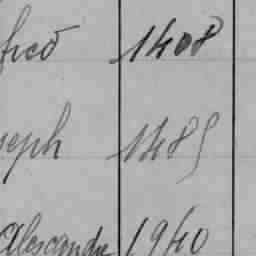 fred 1408
seph 1485
Alexandre 1940